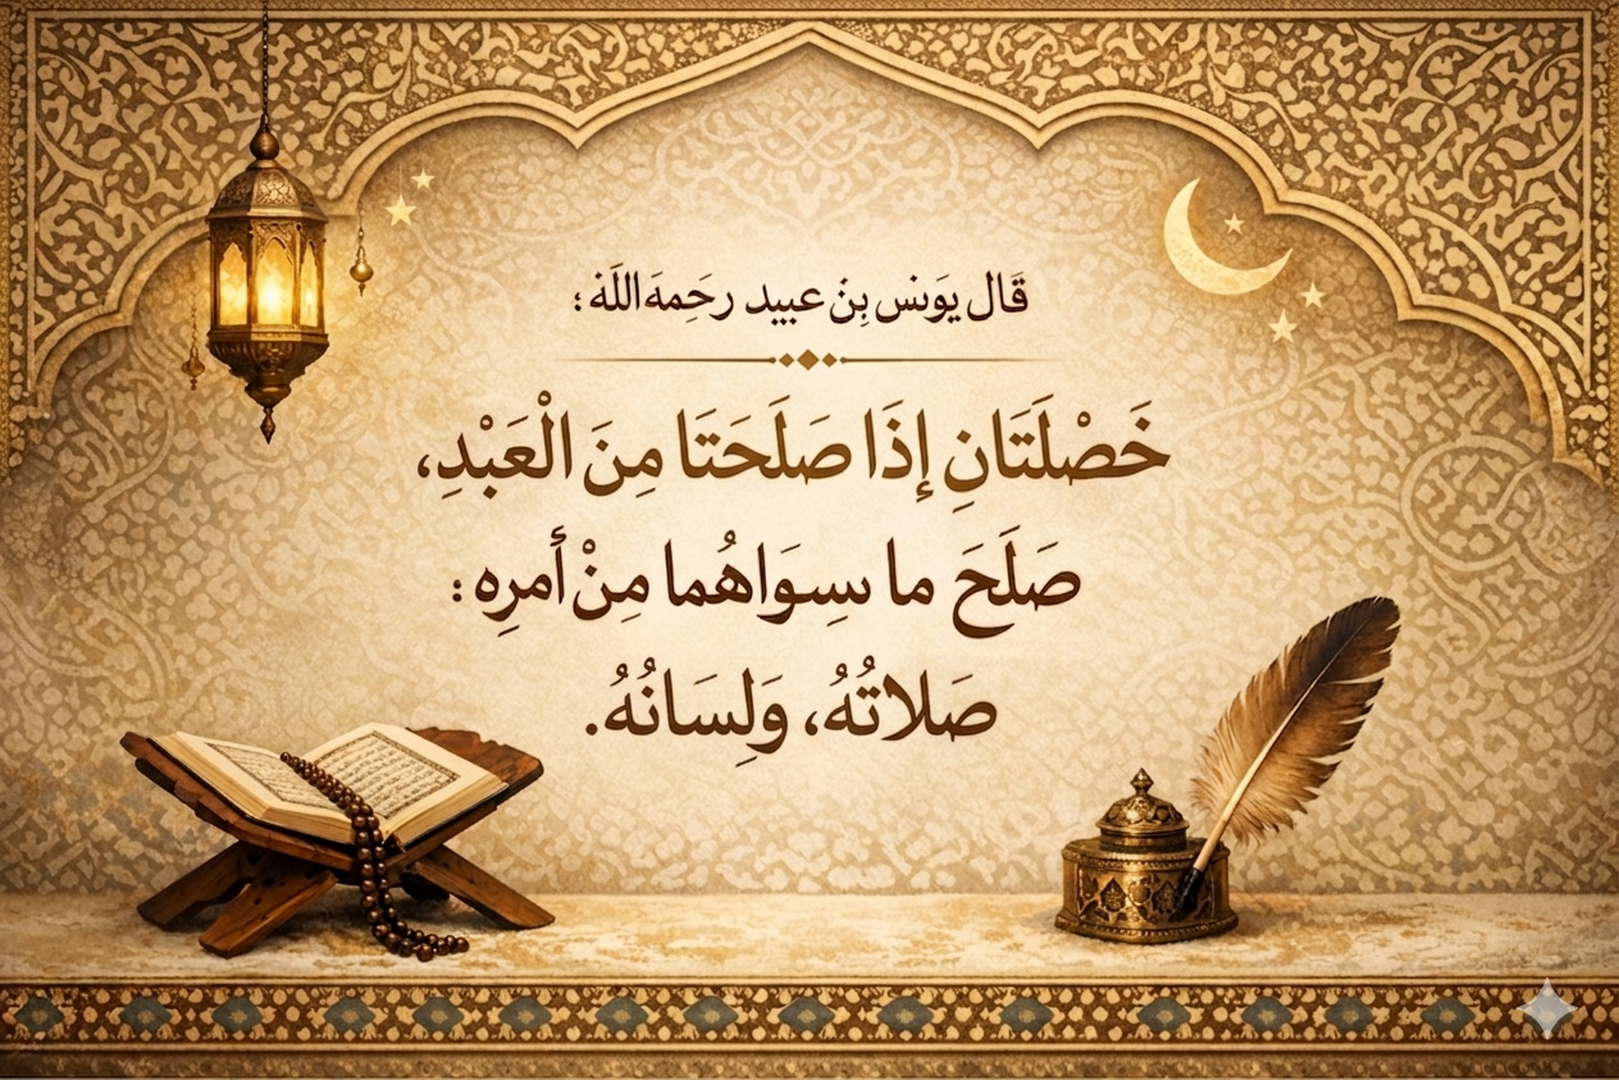 قَال يَونس بِنْ عبيد رحَمِهَ اللَه :
خَصْلَتَانِ إِذَا صَلَحَتَا مِنَ الْعَبْدِ،
صَلَحَ ما سِوَاهُما مِنْ أَمرِه :
صَلاتُهُ، وَلِسَانُهُ.